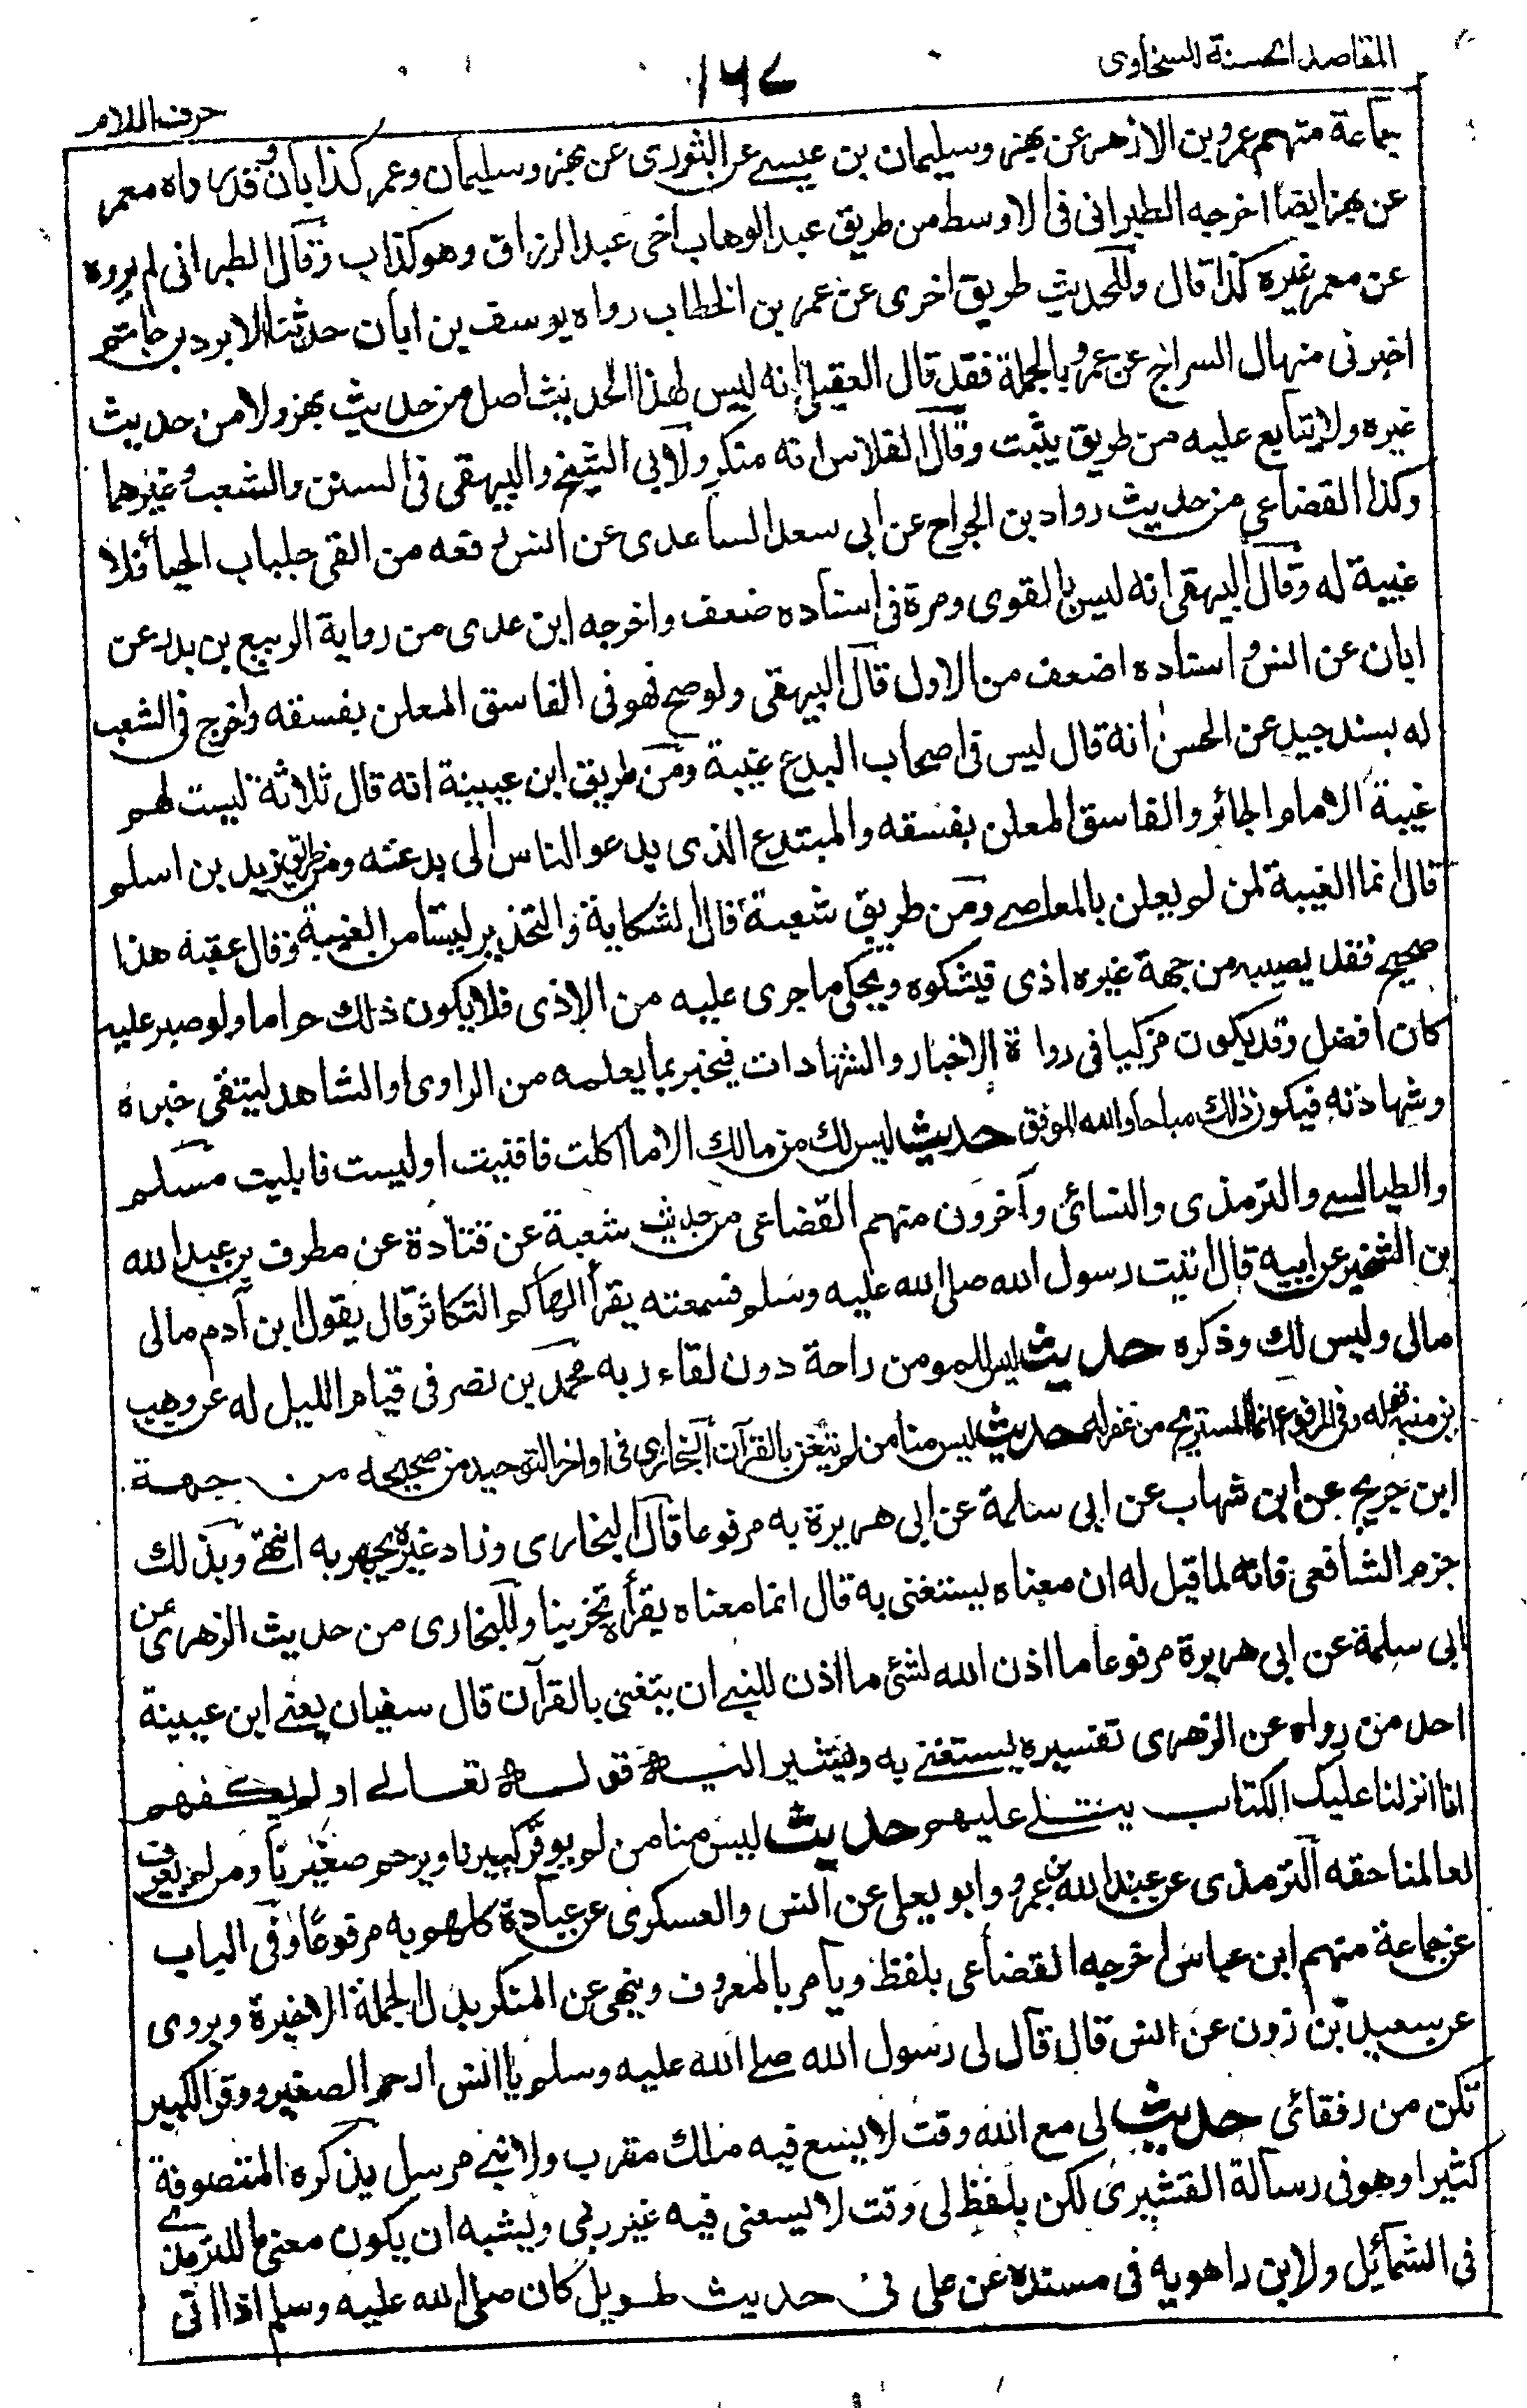 المقاصد الحسنة للسخاوى
١٦٧
حرف اللام
جماعة منهم عمرو بن الازهر عن بهز وسليمان بن عيسى عن الثورى عن بهز وسليمان وعمرو كذابان وقد رواه معمر
عن بهز ايضا اخرجه الطبرانى فى الاوسط من طريق عبد الوهاب اخى عبد الرزاق وهو كذاب وقال الطبرانى لم يروه
عن معمر غيره كذا قال وللحديث طريق اخرى عن عمر بن الخطاب رواه يوسف بن ابان حدثنا الابرد بن حاتم
اخبرنى منهال السراج عن عمر وبالجملة فقد قال العقيلى انه ليس لهذا الحديث اصل من حديث بهز ولا من حديث
غيره ولا يتابع عليه من طريق يثبت وقال الفلاس انه منكر ولابى الشيخ والبيهقى فى السنن والشعب وغيرهما
وكذا القضاعى من حديث رواد بن الجراح عن ابى سعد الساعدى عن انس رفعه من القى جلباب الحياء فلا
غيبة له وقال البيهقى انه ليس بالقوى ومرة فى اسناده ضعف واخرجه ابن عدى من رواية الربيع بن بدر عن
ابان عن انس واسناده اضعف من الاول قال البيهقى ولو صح فهو فى الفاسق المعلن بفسقه واخرج فى الشعب
له بسند جيد عن الحسن انه قال ليس فى اصحاب البدع غيبة ومن طريق ابن عيينة انه قال ثلاثة ليست لهم
غيبة الامام الجائر والفاسق المعلن بفسقه والمبتدع الذى يدعو الناس الى بدعته ومن طريق زيد بن اسلم
قال انما الغيبة لمن لم يعلن بالمعاصى ومن طريق شعبة قال الشكاية والتحذير ليسا من الغيبة وقال عقبه هذا
صحيح فقد يصيبه من جهة غيره اذى فيشكوه ويحكى ما جرى عليه من الاذى فلا يكون ذلك حراما ولو صبر عليه
كان افضل وقد يكون مزكيا فى رواة الاخبار والشهادات فيخبر بما يعلمه من الراوى او الشاهد ليتقى خبره
وشهادته فيكون ذلك مباحا والله الموفق حديث ليس لك من مالك الا ما اكلت فافنيت او لبست فابليت مسلم
والطيالسى والترمذى والنسائى وآخرون منهم القضاعى من حديث شعبة عن قتادة عن مطرف بن عبد الله
بن الشخير عن ابيه قال اتيت رسول الله صلى الله عليه وسلم فسمعته يقرأ الهاكم التكاثر قال يقول ابن آدم مالى
مالى وليس لك وذكره حديث ليس للمومن راحة دون لقاء ربه محمد بن نصر فى قيام الليل له عن وهب
بن منبه قوله وفى المرفوع انما المستريح من غفر له حديث ليس منا من لم يتغن بالقرآن البخارى فى اواخر التوحيد من صحيحه من جهة
ابن جريج عن ابن شهاب عن ابى سلمة عن ابى هريرة به مرفوعا قال البخارى وزاد غيره يجهر به انتهى وبذلك
جزم الشافعى فانه لما قيل له ان معناه يستغنى به قال انما معناه يقرأه تحزينا وللبخارى من حديث الزهرى عن
ابى سلمة عن ابى هريرة مرفوعا ما اذن الله لشئ ما اذن للنبى ان يتغنى بالقرآن قال سفيان يعنى ابن عيينة
احد من رواه عن الزهرى تفسيره يستغنى به ويشير اليه قوله تعالى او لم يكفهم
انا انزلنا عليك الكتاب يتلى عليهم حديث ليس منا من لم يوقر كبيرنا ويرحم صغيرنا ومن لم يعرف
لعالمنا حقه الترمذى عن عبد الله بن عمرو وابو يعلى عن انس والعسكرى عن عبادة كلهم به مرفوعا وفى الباب
عن جماعة منهم ابن عباس اخرجه القضاعى بلفظ ويأمر بالمعروف وينهى عن المنكر بدل الجملة الاخيرة ويروى
عن سعيد بن زون عن انس قال قال لى رسول الله صلى الله عليه وسلم يا انس ارحم الصغير ووقر الكبير
تكن من رفقائى حديث لى مع الله وقت لا يسع فيه ملك مقرب ولا نبى مرسل يذكره المتصوفة
كثيرا وهو فى رسالة القشيرى لكن بلفظ لى وقت لا يسعنى فيه غير ربى ويشبه ان يكون معنى ما للترمذى
فى الشمائل ولابن راهويه فى مسنده عن على فى حديث طويل كان صلى الله عليه وسلم اذا اتى